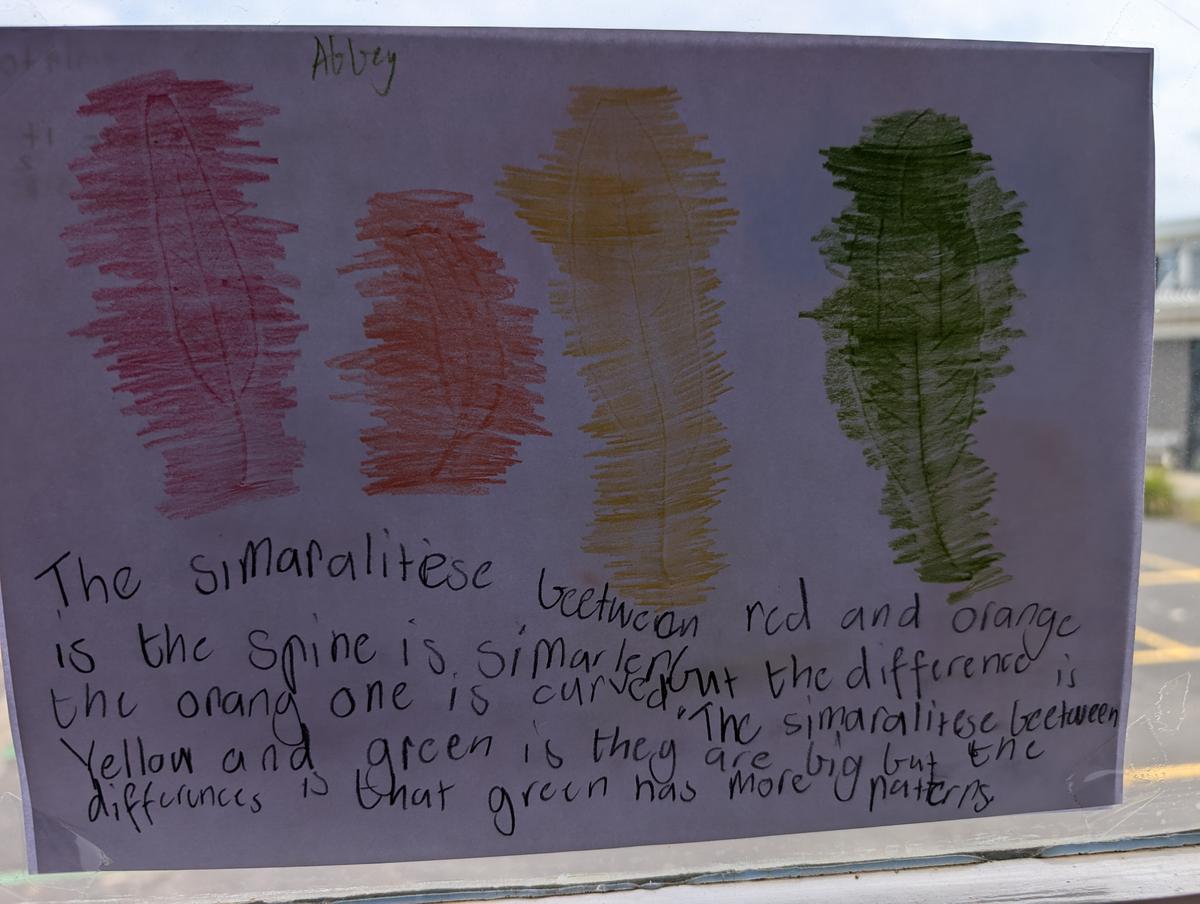 Abbey
The simaralitese beetween red and orange
is the spine is simarler but the difference is
the orang one is curved. The simaralitese beetween
Yellow and green is they are big but the
differences is that green has more patterns.